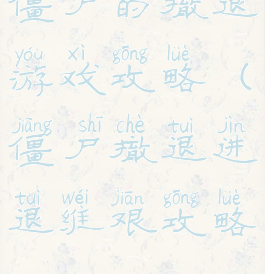 僵尸的撤退
yóu xì gōng lüè
游戏攻略（
jiāng shī chè tuì jìn
僵尸撤退进
tuì wéi jiān gōng lüè
退维艰攻略